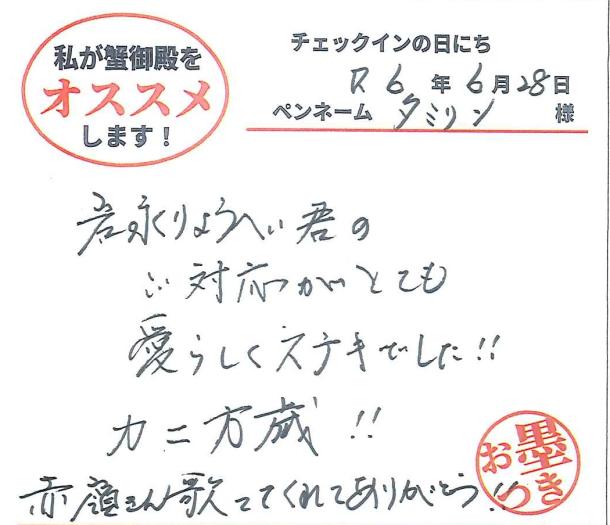 私が蟹御殿を
オススメ
します！
チェックインの日にち
R6年6月28日
ペンネーム タミリン 様
岩永りょうへい君の
ご対応がとても
愛らしくステキでした!!
カニ万歳 !!
赤顔さん歌ってくれてありがとう!!
お墨
つき